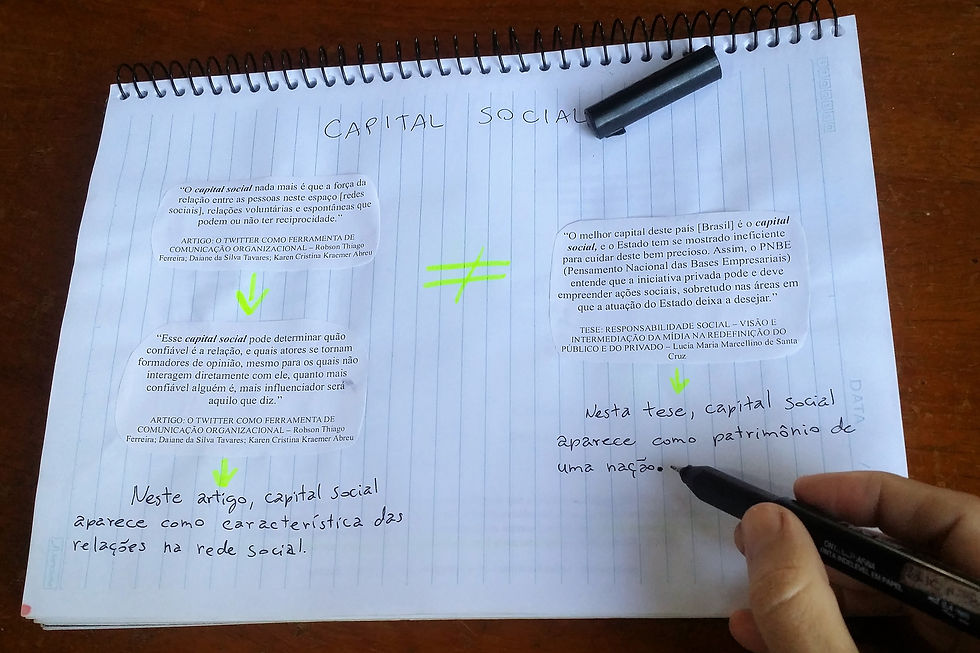 CAPITAL SOCIAL
"O capital social nada mais é que a força da
relação entre as pessoas neste espaço [redes
sociais], relações voluntárias e espontâneas que
podem ou não ter reciprocidade."
ARTIGO: O TWITTER COMO FERRAMENTA DE
COMUNICAÇÃO ORGANIZACIONAL – Robson Thiago
Ferreira; Daiane da Silva Tavares; Karen Cristina Kraemer Abreu
"Esse capital social pode determinar quão
confiável é a relação, e quais atores se tornam
formadores de opinião, mesmo para os quais não
interagem diretamente com ele, quanto mais
confiável alguém é, mais influenciador será
aquilo que diz."
ARTIGO: O TWITTER COMO FERRAMENTA DE
COMUNICAÇÃO ORGANIZACIONAL – Robson Thiago
Ferreira; Daiane da Silva Tavares; Karen Cristina Kraemer Abreu
Neste artigo, capital social
aparece como característica das
relações na rede social.
≠
"O melhor capital deste país [Brasil] é o capital
social, e o Estado tem se mostrado ineficiente
para cuidar deste bem precioso. Assim, o PNBE
(Pensamento Nacional das Bases Empresariais)
entende que a iniciativa privada pode e deve
empreender ações sociais, sobretudo nas áreas em
que a atuação do Estado deixa a desejar."
TESE: RESPONSABILIDADE SOCIAL – VISÃO E
INTERMEDIAÇÃO DA MÍDIA NA REDEFINIÇÃO DO
PÚBLICO E DO PRIVADO – Lucia Maria Marcellino de Santa
Cruz
Nesta tese, capital social
aparece como patrimônio de
uma nação.
DATA
TINTA INDELÉVEL EM PAPEL